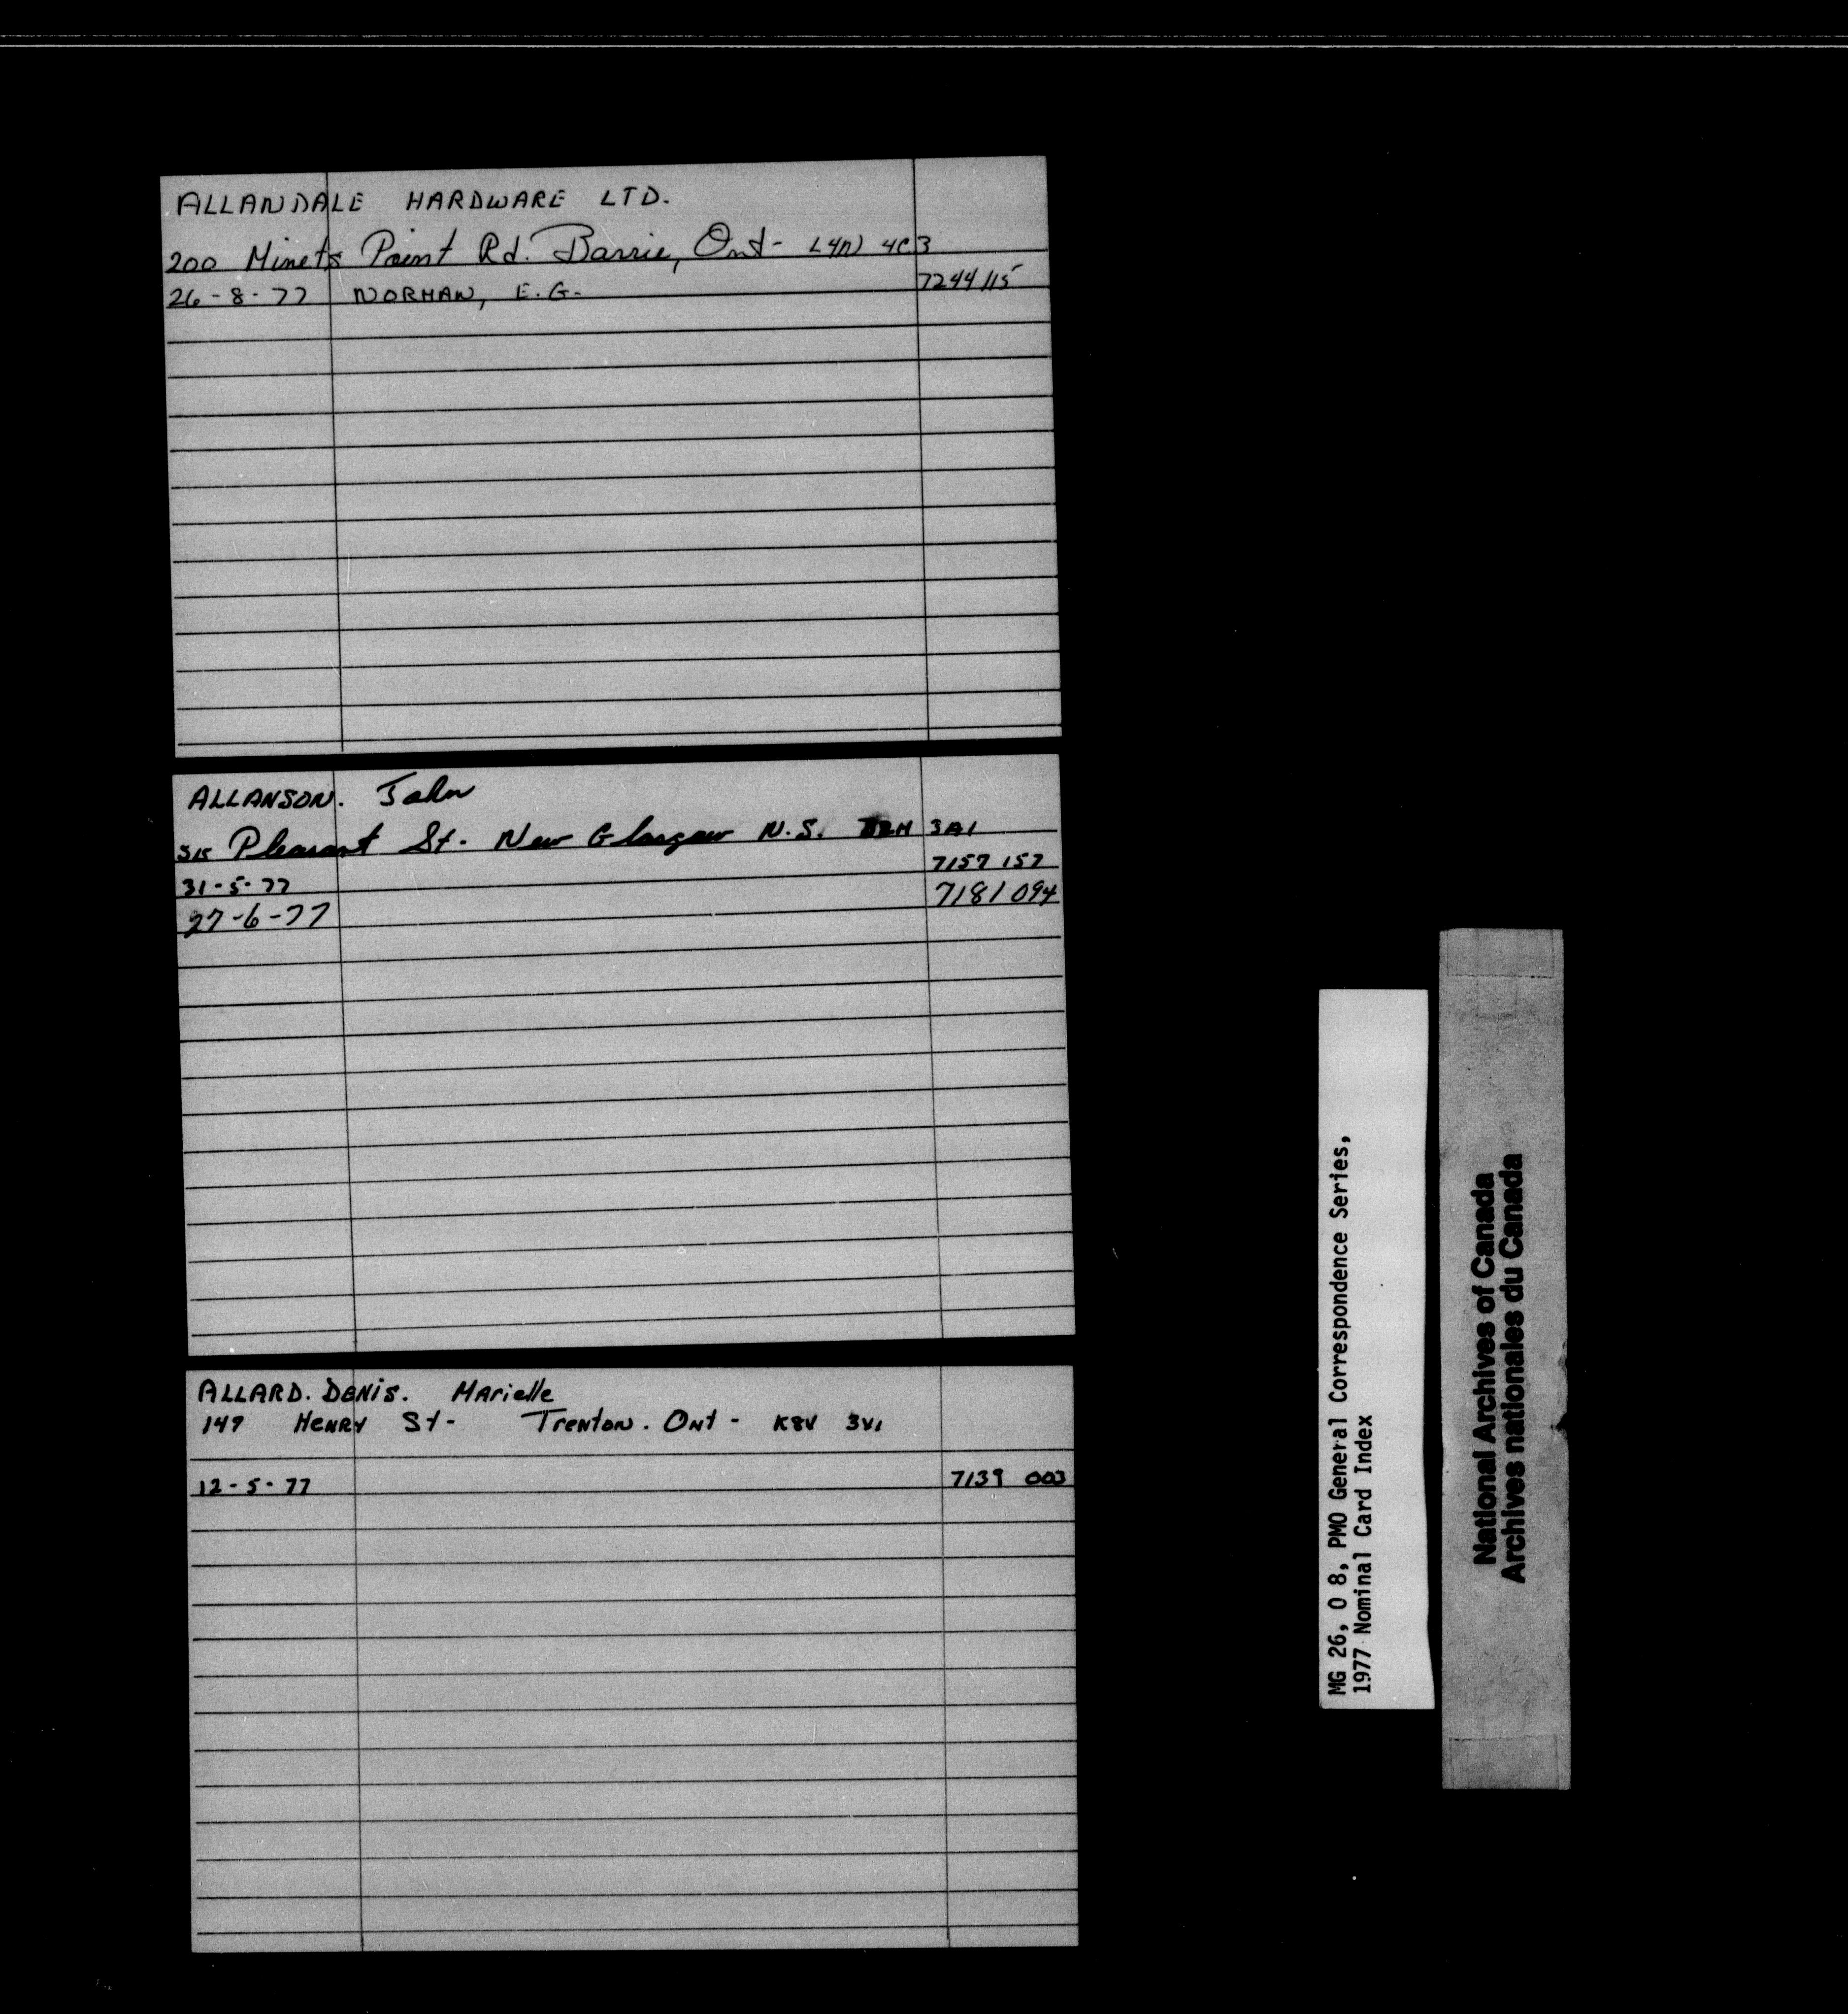 ALLANDALE HARDWARE LTD.
200 Minets Point Rd. Barrie, Ont - L4N 4C3
26-8-77 NORMAN, E.G. 7244 115
ALLANSON. John
Pleasant St. New Glasgow N.S. 3A1
31-5-77 7157 157
27-6-77 7181 094
ALLARD. DENIS. Marielle
149 Henry St - Trenton. Ont - K8V 3V1
12-5-77 7139 003
MG 26, O 8, PMO General Correspondence Series,
1977 Nominal Card Index
National Archives of Canada
Archives nationales du Canada